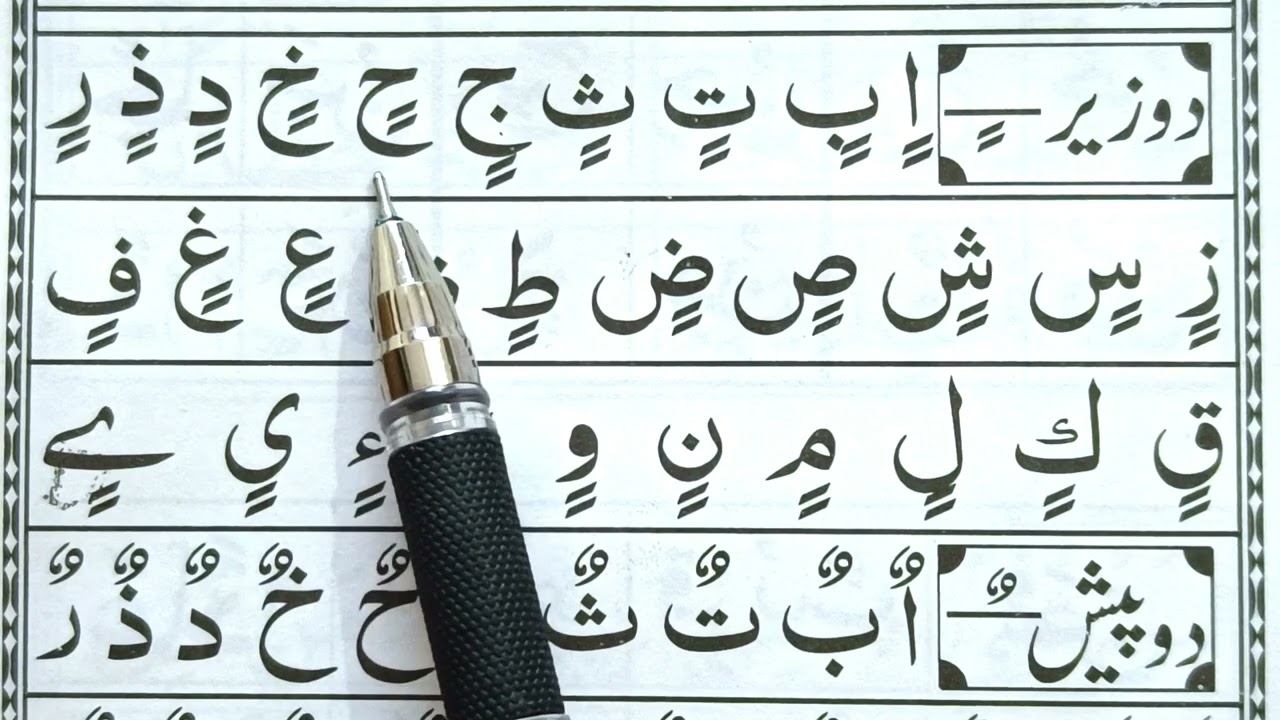 دو زیر ــٍـ اٍ بٍ تٍ ثٍ جٍ حٍ خٍ دٍ ذٍ رٍ
زٍ سٍ شٍ صٍ ضٍ طٍ عٍ غٍ فٍ
قٍ كٍ لٍ مٍ نٍ وٍ ءٍ یٍ ےٍ
دو پیش ــٌـ اٌ بٌ تٌ ثٌ حٌ خٌ دٌ ذٌ رٌ